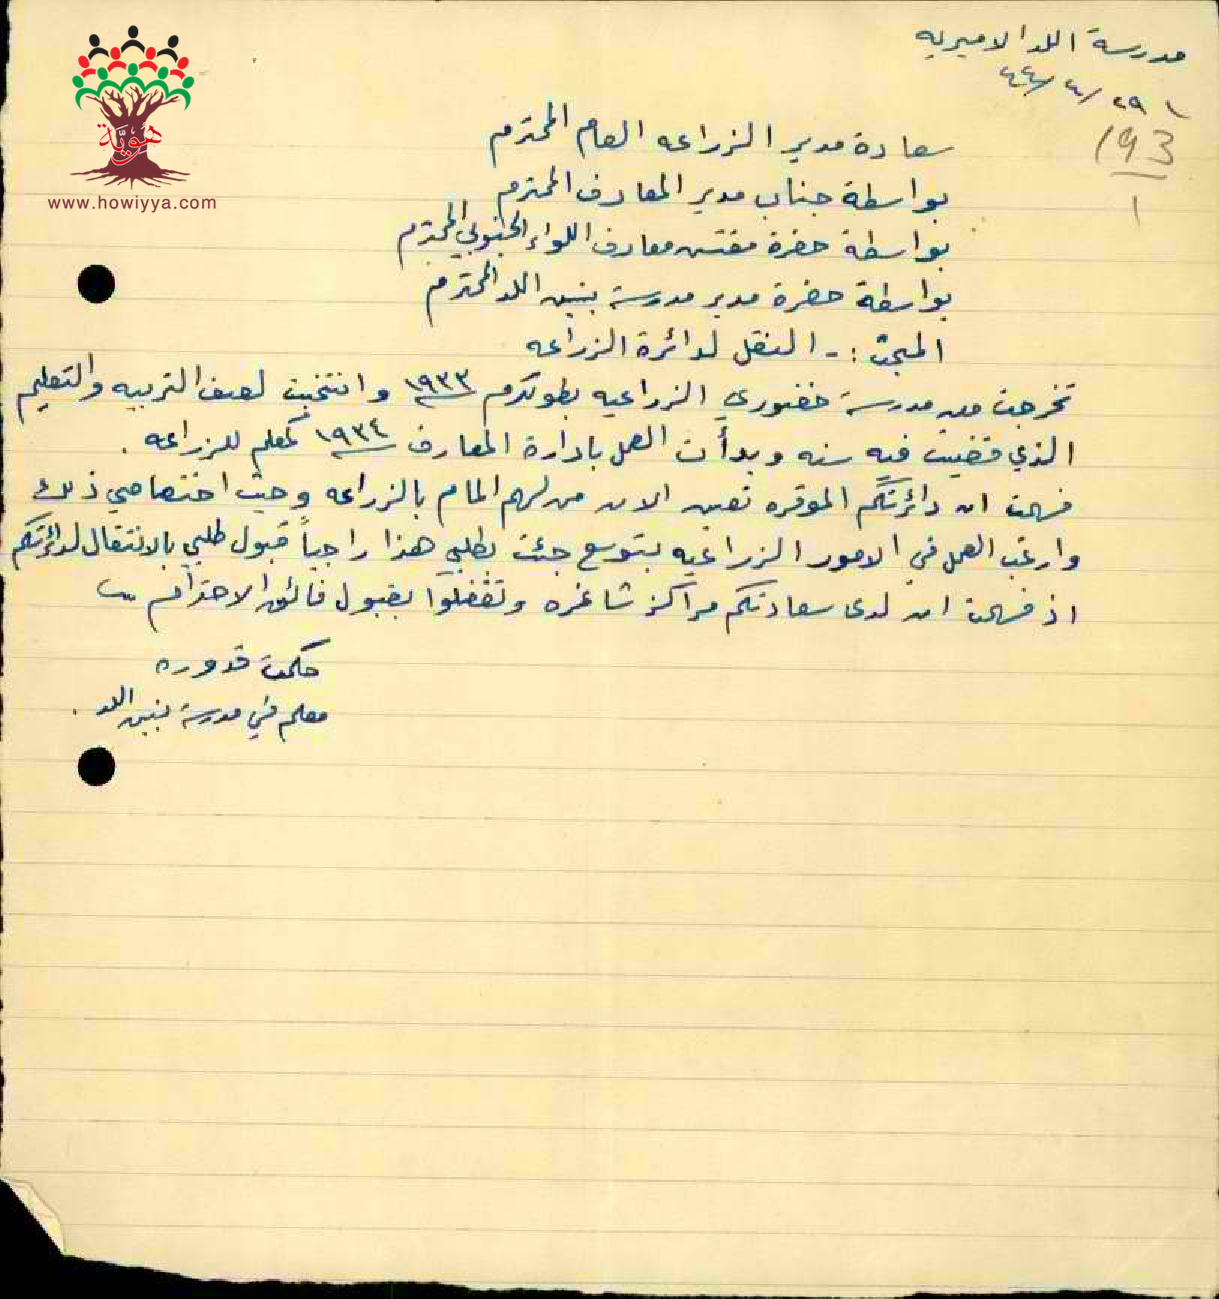 مدرسة اللد الاميريه
٢٩/٤/٤٤
193
1
سعادة مدير الزراعه العام المحترم
بواسطة جناب مدير المعارف المحترم
بواسطة حضرة مفتش معارف اللواء الجنوبي المحترم
بواسطة حضرة مدير مدرسة بنين اللد المحترم
المبحث :- النقل لدائرة الزراعه
تخرجت من مدرسة خضوري الزراعيه بطولكرم ١٩٣٣ وانتخبت لصف التربيه والتعليم
الذي قضيت فيه سنه وبدأت العمل بادارة المعارف ١٩٣٤ كمعلم للزراعه .
فهمت ان دائرتكم الموقره تعين الان من لهم المام بالزراعه وحيث اختصاصي ذلك
وارغب العمل في الامور الزراعيه بتوسع جئت بطلبي هذا راجياً قبول طلبي بالانتقال لدائرتكم
اذ فهمت ان لدى سعادتكم مراكز شاغره وتفضلوا بقبول فائق الاحترام
حكمت قدوره
معلم في مدرسة بنين اللد .
هويّة
www.howiyya.com